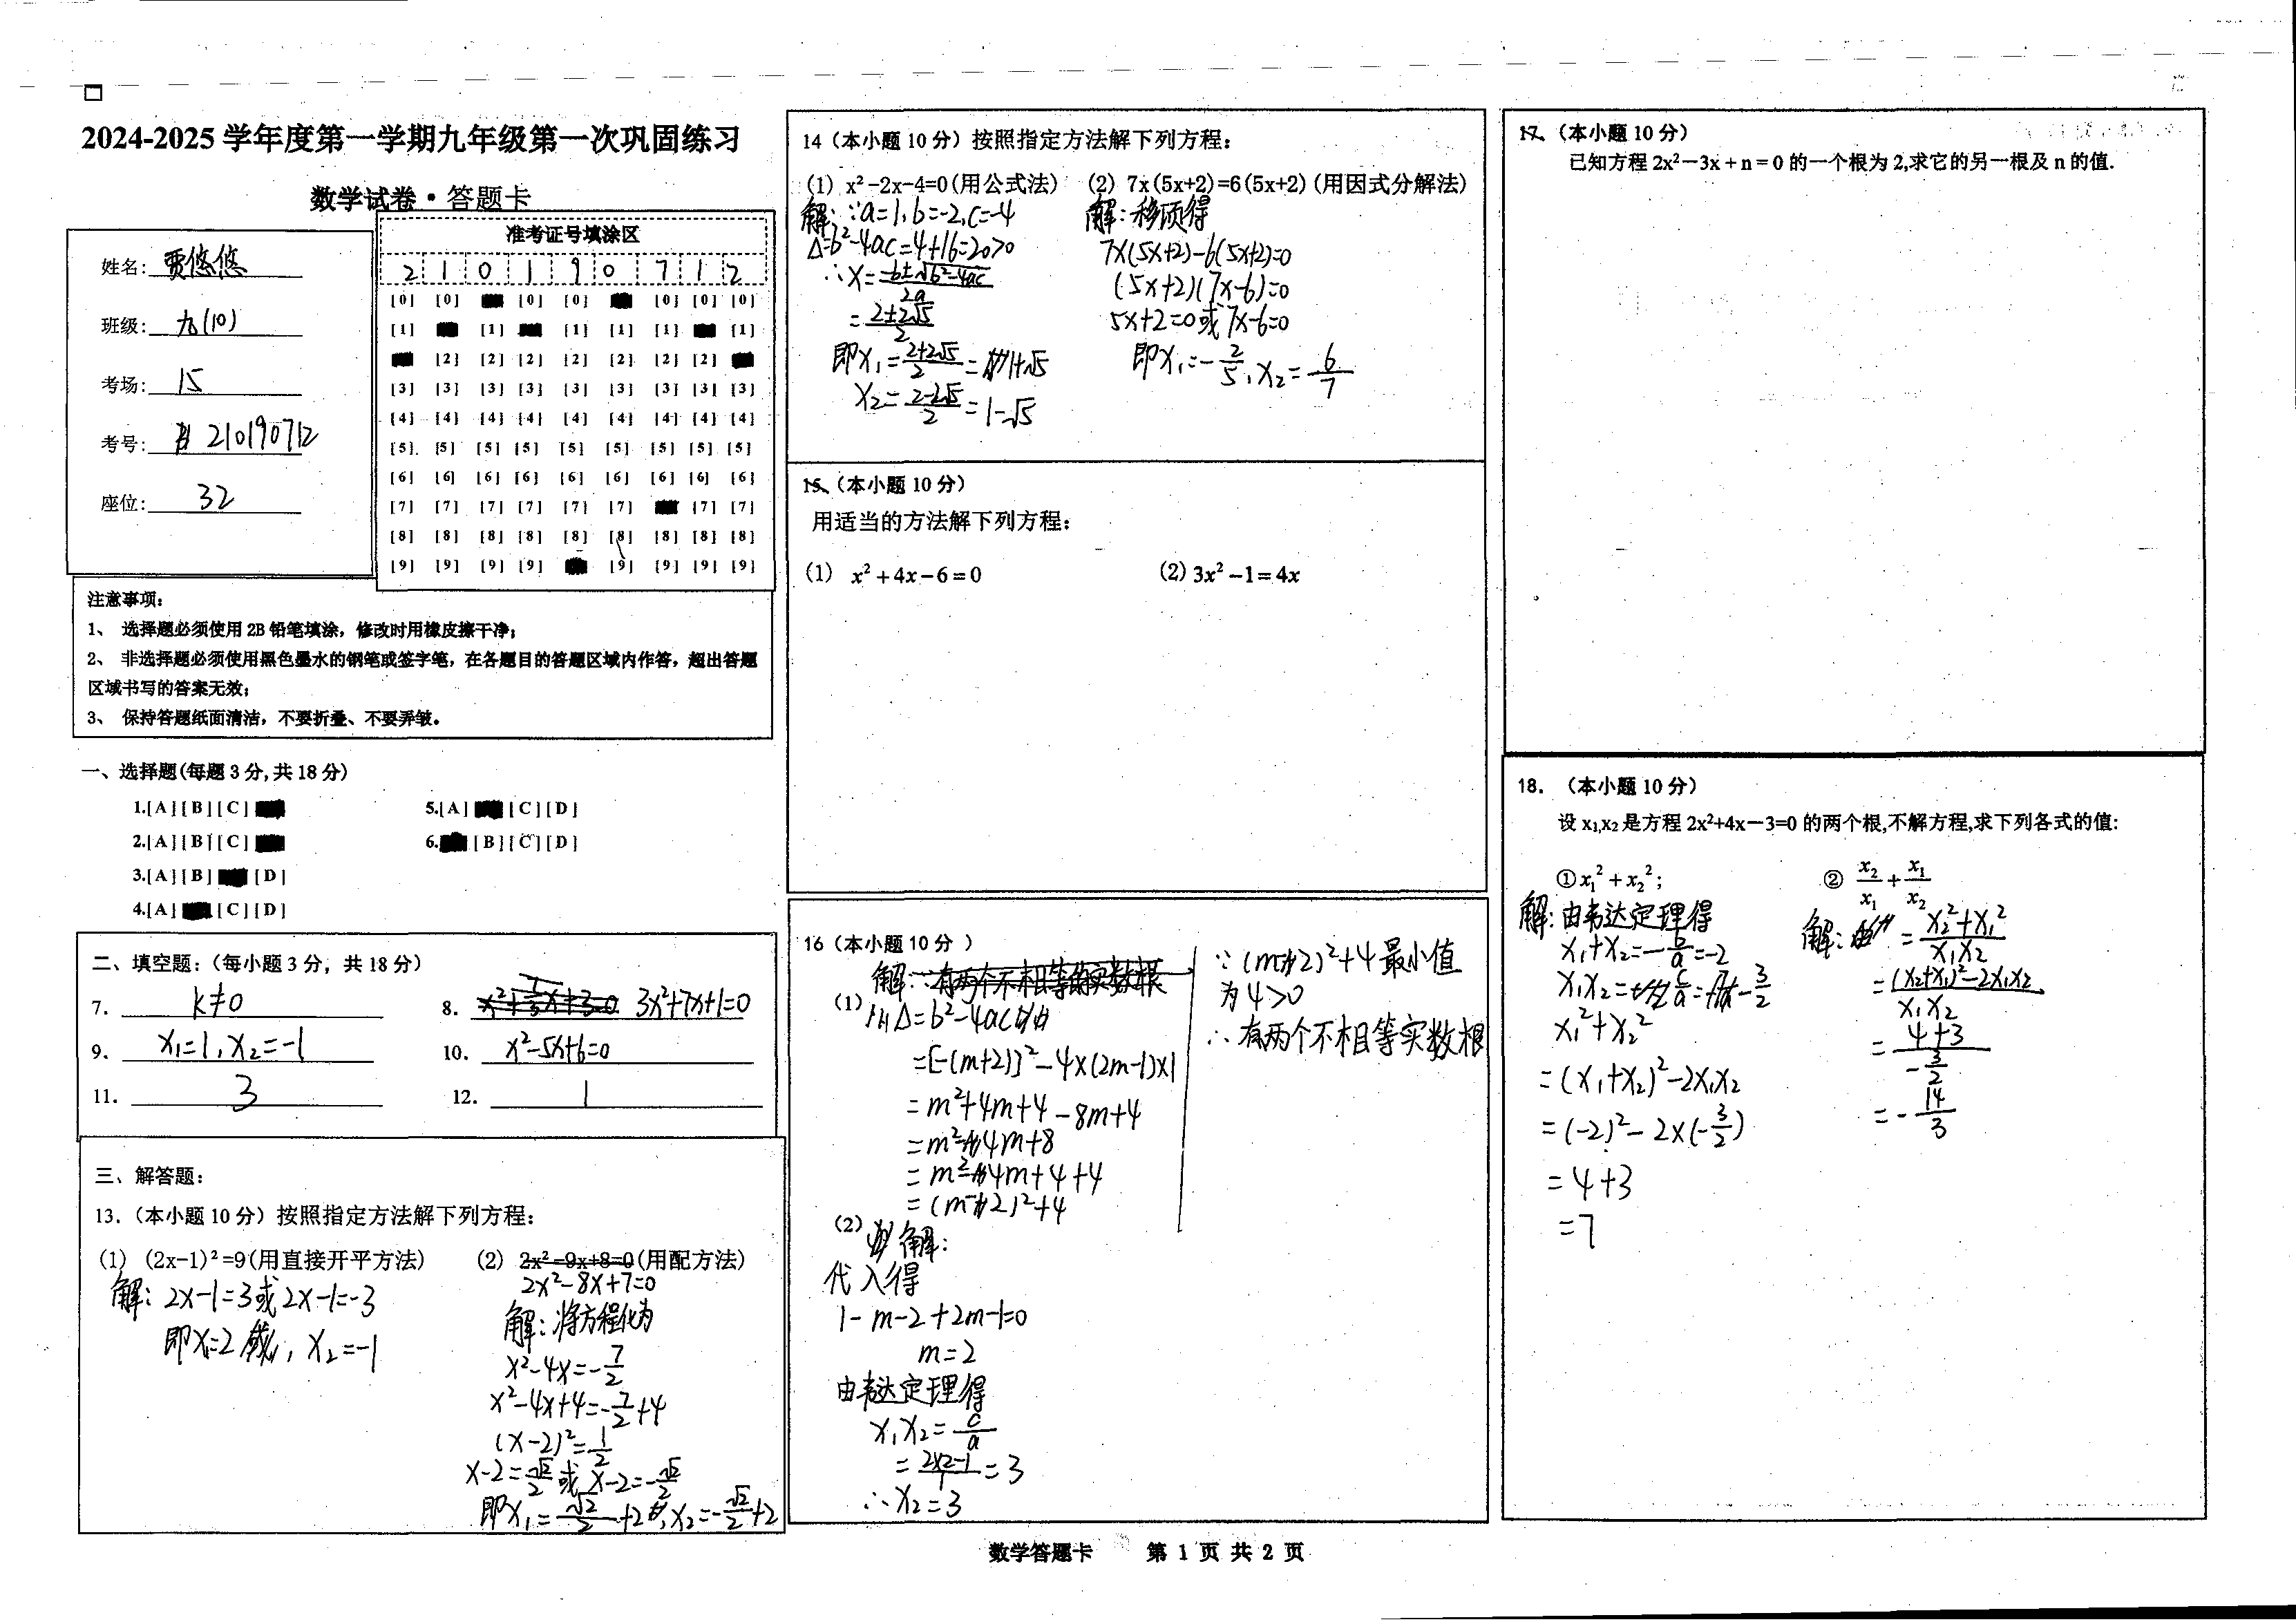 2024-2025学年度第一学期九年级第一次巩固练习
数学试卷·答题卡
姓名：贾悠悠
班级：九(10)
考场：15
考号：210190712
座位：32
准考证号填涂区
2 1 0 1 9 0 7 1 2
[0] [0] [0] [0] [0] [0] [0]
[1] [1] [1] [1] [1] [1]
[2] [2] [2] [2] [2] [2] [2]
[3] [3] [3] [3] [3] [3] [3] [3] [3]
[4] [4] [4] [4] [4] [4] [4] [4] [4]
[5] [5] [5] [5] [5] [5] [5] [5] [5]
[6] [6] [6] [6] [6] [6] [6] [6] [6]
[7] [7] [7] [7] [7] [7] [7] [7]
[8] [8] [8] [8] [8] [8] [8] [8] [8]
[9] [9] [9] [9] [9] [9] [9] [9]
注意事项：
1、 选择题必须使用2B铅笔填涂，修改时用橡皮擦干净；
2、 非选择题必须使用黑色墨水的钢笔或签字笔，在各题目的答题区域内作答，超出答题
区域书写的答案无效；
3、 保持答题纸面清洁，不要折叠、不要弄皱。
一、选择题(每题3分,共18分)
1.[A][B][C]
2.[A][B][C]
3.[A][B] [D]
4.[A] [C][D]
5.[A] [C][D]
6. [B][C][D]
二、填空题：（每小题3分，共18分）
7. k≠0
8. 3x²+7x+1=0
9. x₁=1, x₂=-1
10. x²-5x+6=0
11. 3
12. 1
三、解答题：
13.（本小题10分）按照指定方法解下列方程：
(1) (2x-1)²=9(用直接开平方法)
解：2x-1=3或2x-1=-3
即x₁=2, x₂=-1
(2) 2x²-9x+8=0(用配方法)
2x²-8x+7=0
解：将方程化为
x²-4x=-7/2
x²-4x+4=-7/2+4
(x-2)²=1/2
x-2=√2/2或x-2=-√2/2
即x₁=√2/2+2, x₂=-√2/2+2
14（本小题10分）按照指定方法解下列方程：
(1) x²-2x-4=0(用公式法)
解：∵a=1,b=-2,c=-4
Δ=b²-4ac=4+16=20>0
∴x=-b±√b²-4ac/2a
=2±2√5/2
即x₁=2+2√5/2=1+√5
x₂=2-2√5/2=1-√5
(2) 7x(5x+2)=6(5x+2)(用因式分解法)
解：移项得
7x(5x+2)-6(5x+2)=0
(5x+2)(7x-6)=0
5x+2=0或7x-6=0
即x₁=-2/5, x₂=6/7
15、（本小题10分）
用适当的方法解下列方程：
(1) x²+4x-6=0
(2) 3x²-1=4x
16（本小题10分 ）
解：有两个不相等的实数根
(1)
Δ=b²-4ac
=[-(m+2)]²-4×(2m-1)×1
=m²+4m+4-8m+4
=m²-4m+8
=m²-4m+4+4
=(m-2)²+4
∵(m-2)²+4最小值
为4>0
∴有两个不相等实数根
(2)
解：
代入得
1-m-2+2m-1=0
m=2
由韦达定理得
x₁x₂=c/a
=2×2-1/1=3
∴x₂=3
17、（本小题10分）
已知方程2x²-3x+n=0的一个根为2,求它的另一根及n的值.
18. （本小题10分）
设x₁,x₂是方程2x²+4x-3=0的两个根,不解方程,求下列各式的值：
①x₁²+x₂²；
解：由韦达定理得
x₁+x₂=-b/a=-2
x₁x₂=c/a=-3/2
x₁²+x₂²
=(x₁+x₂)²-2x₁x₂
=(-2)²-2×(-3/2)
=4+3
=7
② x₂/x₁+x₁/x₂
解：=x₂²+x₁²/x₁x₂
=(x₂+x₁)²-2x₁x₂/x₁x₂
=4+3/-3/2
=-14/3
数学答题卡 第 1 页 共 2 页